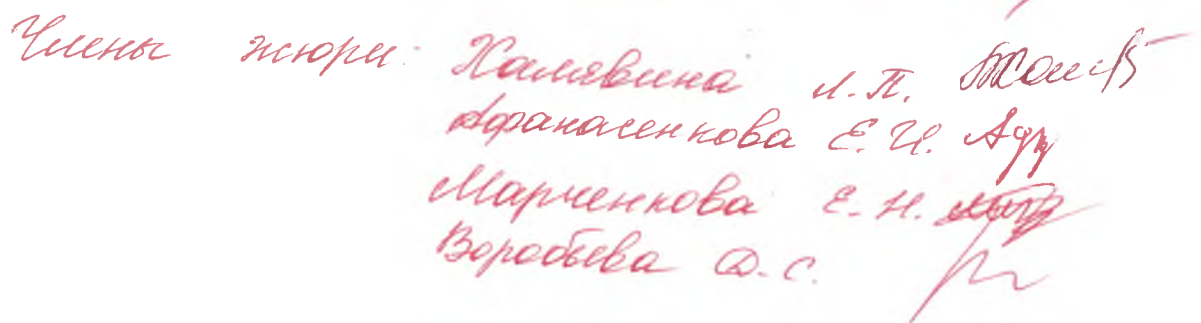 Члены жюри: Халявина Л.П.
Афанасенкова Е.И.
Марченкова Е.Н.
Воробьева Д.С.